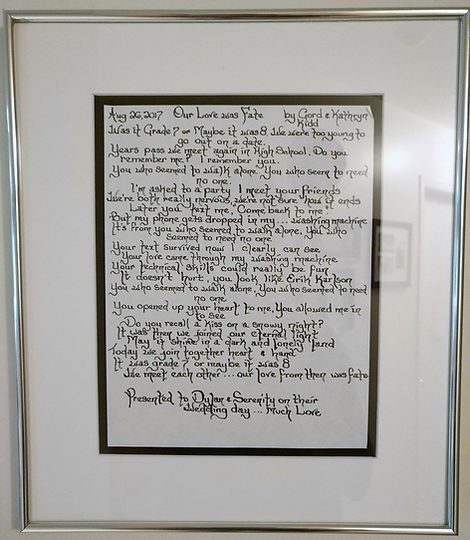 Aug 26, 2017 Our Love was Fate by Gord & Kathryn
Kidd
Was it Grade 7 or Maybe it was 8, We were too young to
go out on a date.
Years pass we meet again in High School, Do you
remember me? I remember you.
You who seemed to walk alone, You who seem to need
no one.
I'm asked to a party I meet your friends
We're both really nervous, we're not sure how it ends
Later you text me, Come back to me
But my phone gets dropped in my... washing machine
It's from you who seemed to walk alone, You who
seemed to need no one
Your text survived now I clearly can see
Your love came through my washing machine
Your technical skills could really be fun
It doesn't hurt, you look like Erik Karlson
You who seemed to walk alone, You who seemed to need
no one
You opened up your heart to me, You allowed me in
to see
Do you recall a kiss on a snowy night?
It was then we joined our eternal light
May it shine in a dark and lonely land
Today we join together heart & hand
It was grade 7 or maybe it was 8
We meet each other... our love from then was fate
Presented to Dylan & Serenity on their
Wedding day... Much Love